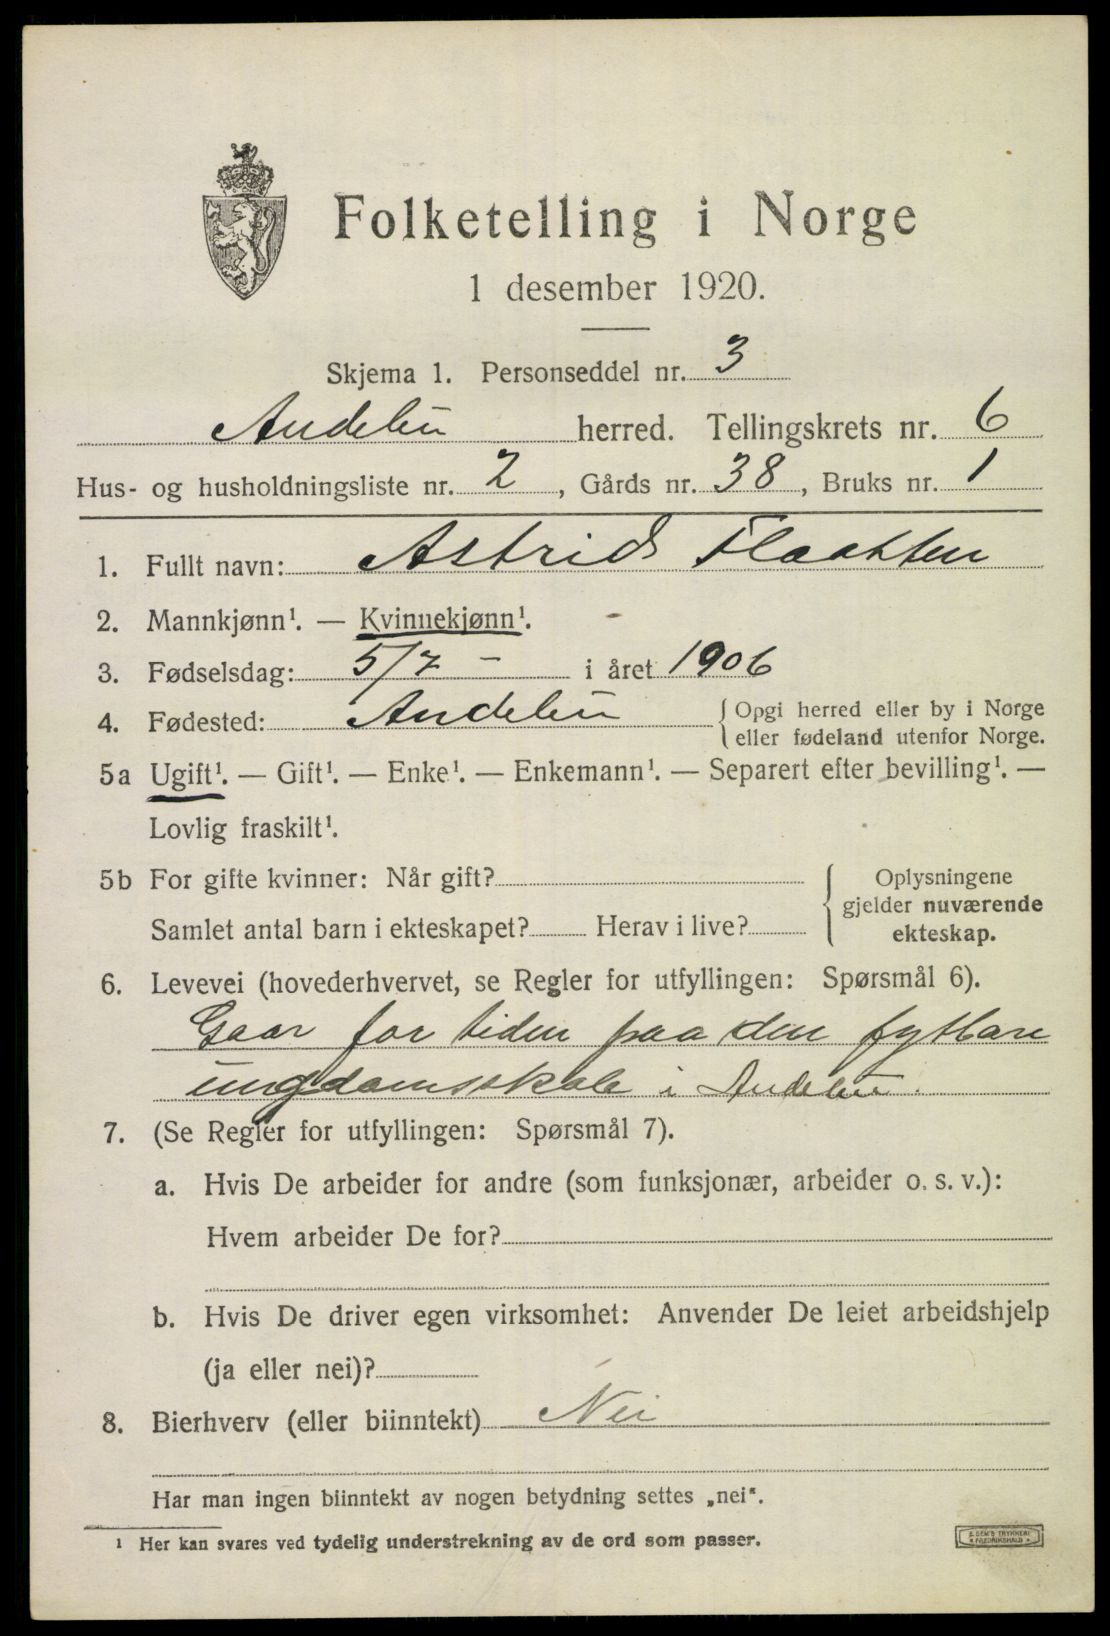 Folketelling i Norge
1 desember 1920.
Skjema 1. Personseddel nr. 3
Andebu herred. Tellingskrets nr. 6
Hus- og husholdningsliste nr. 2, Gårds nr. 38, Bruks nr. 1
1. Fullt navn: Astrid Flaatten
2. Mannkjønn¹. — Kvinnekjønn¹.
3. Fødselsdag: 5/7 - i året 1906
4. Fødested: Andebu { Opgi herred eller by i Norge
eller fødeland utenfor Norge.
5a Ugift¹. — Gift¹. — Enke¹. — Enkemann¹. — Separert efter bevilling¹. —
Lovlig fraskilt¹.
5b For gifte kvinner: Når gift?
Samlet antal barn i ekteskapet? Herav i live?
{ Oplysningene
gjelder nuværende
ekteskap.
6. Levevei (hovederhvervet, se Regler for utfyllingen: Spørsmål 6).
Gaar for tiden paa den fytbare
ungdomsskole i Andebu.
7. (Se Regler for utfyllingen: Spørsmål 7).
a. Hvis De arbeider for andre (som funksjonær, arbeider o. s. v.):
Hvem arbeider De for?
b. Hvis De driver egen virksomhet: Anvender De leiet arbeidshjelp
(ja eller nei)?
8. Bierhverv (eller biinntekt) Nei
Har man ingen biinntekt av nogen betydning settes „nei“.
¹ Her kan svares ved tydelig understrekning av de ord som passer.
E. SEM'S TRYKKERI
FREDRIKSHALD